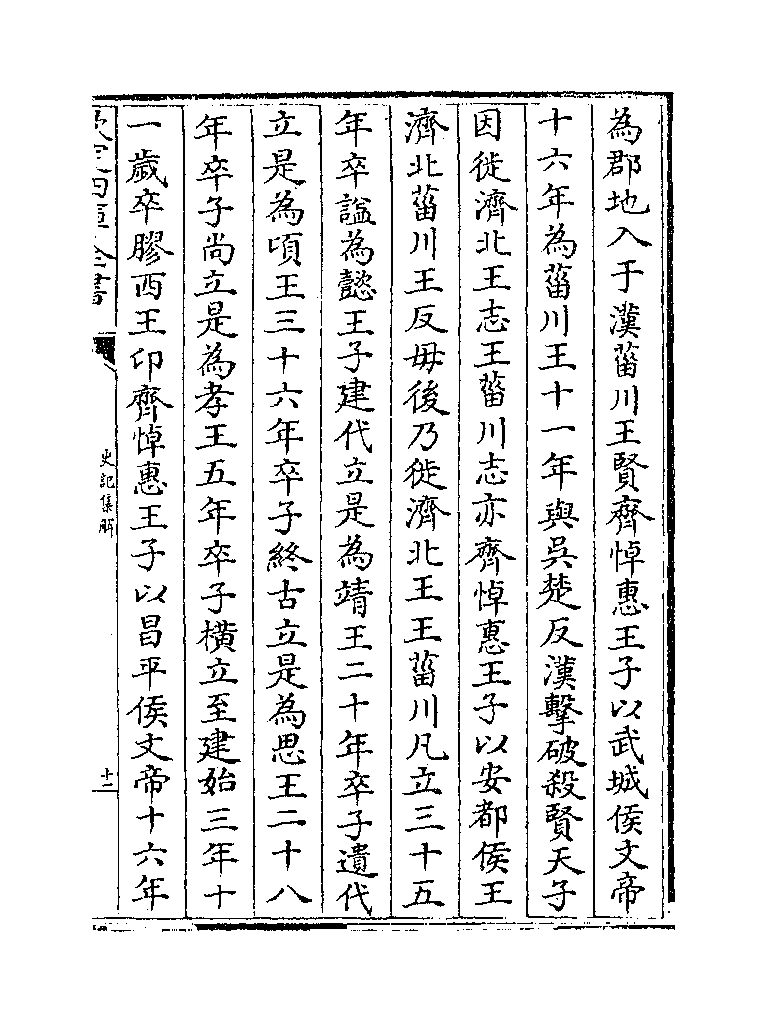 為郡地入于漢菑川王賢齊悼惠王子以武城侯文帝
十六年為菑川王十一年與吳楚反漢擊破殺賢天子
因徙濟北王志王菑川志亦齊悼惠王子以安都侯王
濟北菑川王反毋後乃徙濟北王王菑川凡立三十五
年卒諡為懿王子建代立是為靖王二十年卒子遺代
立是為頃王三十六年卒子終古立是為思王二十八
年卒子尚立是為孝王五年卒子橫立至建始三年十
一歲卒膠西王卬齊悼惠王子以昌平侯文帝十六年
欽定四庫全書
史記集解
十二